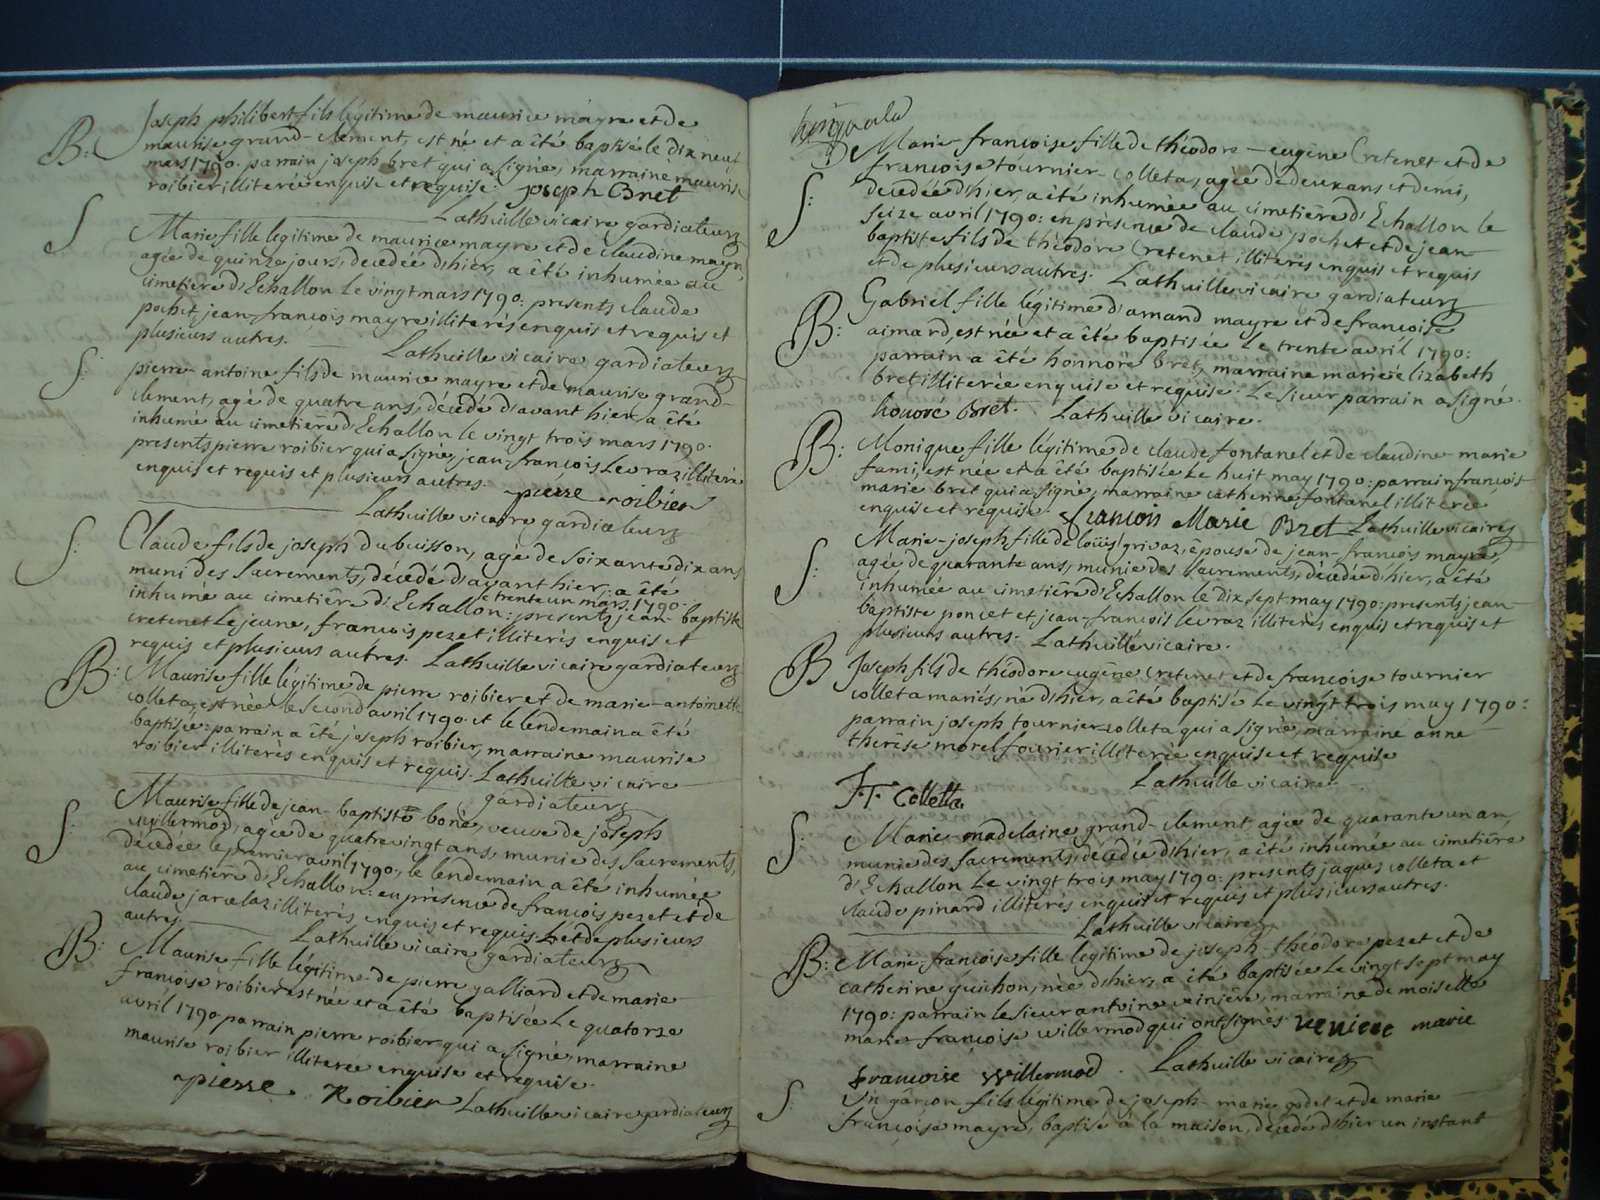 B: Joseph philibert fils légitime de maurice mayre et de
maurise grand-clement, est né et a êté baptisé le dix neuf
mars 1790. parrain joseph bret qui a signé, marraine maurise
roibier illiterée enquise et requise. joseph Bret
Lathuille vicaire gardiateur
S: Marie fille legitime de maurice mayre et de claudine mayre,
agée de quinze jours, decedée d'hier, a êté inhumée au
cimetière d'Echallon le vingt mars 1790: presents claude
pochet, jean-francois mayre illiterés enquis et requis et
plusieurs autres. Lathuille vicaire gardiateur
S: pierre-antoine fils de maurice mayre et de maurise grand-
clement, agé de quatre ans, décédé d'avant hier, a êté
inhumé au cimetière d'Echallon le vingt trois mars 1790.
presents pierre roibier qui a signé, jean-francois Levraz illiteré
enquis et requis et plusieurs autres. pierre roibier
Lathuille vicaire gardiateur
S: Claude fils de joseph dubuisson, agé de soixante dix ans
muni des sacrements, décédé d'avant hier, a êté
inhumé au cimetière d'Echallon le trente un mars 1790: presents jean-baptiste
cretenet Lejeune, francois pezet illiterés enquis et
requis et plusieurs autres. Lathuille vicaire gardiateur
B: Maurise fille légitime de pierre roibier et de marie-antoinette
colleta, est née le second avril 1790 et le lendemain a êté
baptisée: parrain a êté joseph roibier, marraine maurise
roibier illiterés enquis et requis. Lathuille vicaire
gardiateur
S: Maurise fille de jean-baptiste bone, veuve de joseph
willermod, agée de quatrevingt ans, munie des sacrements,
décédée le premier avril 1790, le lendemain a êté inhumée
au cimetière d'Echallon: en présence de francois pezet et de
claude jarcelaz illiterés enquis et requis et de plusieurs
autres. Lathuille vicaire gardiateur
B: Maurise fille légitime de pierre galliard et de marie
francoise roibier est née et a êté baptisée Le quatorze
avril 1790 parrain pierre roibier qui a signé, marraine
maurise roibier illiterée enquise et requise.
pierre Roibier Lathuille vicaire gardiateur
S: Marie-francoise fille de théodore-eugène Cretenet et de
francoise tournier-colleta, agée de deux ans et demi,
decedée d'hier, a êté inhumée au cimetière d'Echallon le
seize avril 1790: en présence de claude pochet et de jean-
baptiste fils de théodore Cretenet illiterés enquis et requis
et de plusieurs autres. Lathuille vicaire gardiateur
B: Gabriel fille légitime d'amand mayre et de francoise
aimard, est née et a êté baptisée Le trente avril 1790:
parrain a êté honnoré bret, marraine marie elizabeth
bret illiterée enquise et requise. Le sieur parrain a signé.
honoré Bret. Lathuille vicaire.
B: Monique fille légitime de claude fontanel et de claudine-marie
fami, est née et a êté baptisée Le huit may 1790: parrain françois
marie bret qui a signé, marraine catherine fontanel illiterée
enquise et requise. francois Marie Bret Lathuille vicaire
S: Marie-joseph fille de loüis grivaz, épouse de jean-françois mayre,
agée de quarante ans, munie des sacrements, décédée d'hier, a êté
inhumée au cimetière d'Echallon le dix sept may 1790: presents jean-
baptiste poncet et jean-francois levraz illiterés enquis et requis et
plusieurs autres. Lathuille vicaire.
B Joseph fils de théodore eugène Cretenet et de francoise tournier
colleta mariés, né d'hier, a êté baptisé Le vingt trois may 1790:
parrain joseph tournier-colleta qui a signé, marraine anne-
therèse morel fourier illiterée enquise et requise
J.T. Colletta Lathuille vicaire
S: Marie-madelaine grand-clement, agée de quarante un an,
munie des sacrements, décédée d'hier, a êté inhumée au cimetière
d'Echallon Le vingt trois may 1790: presents jaques colleta et
claude pinard illiterés enquis et requis et plusieurs autres.
Lathuille vicaire
B: Marie-francoise fille legitime de joseph-théodore pezet et de
catherine guihon, née d'hier, a êté baptisée Le vingt sept may
1790: parrain le sieur antoine veinière, marraine demoiselle
marie françoise willermod qui ont signés veniere marie
francoise willermod. Lathuille vicaire
S: Un garçon fils légitime de joseph-marie godet et de marie
françoise mayre, baptisé à la maison, décédé d'hier un instant